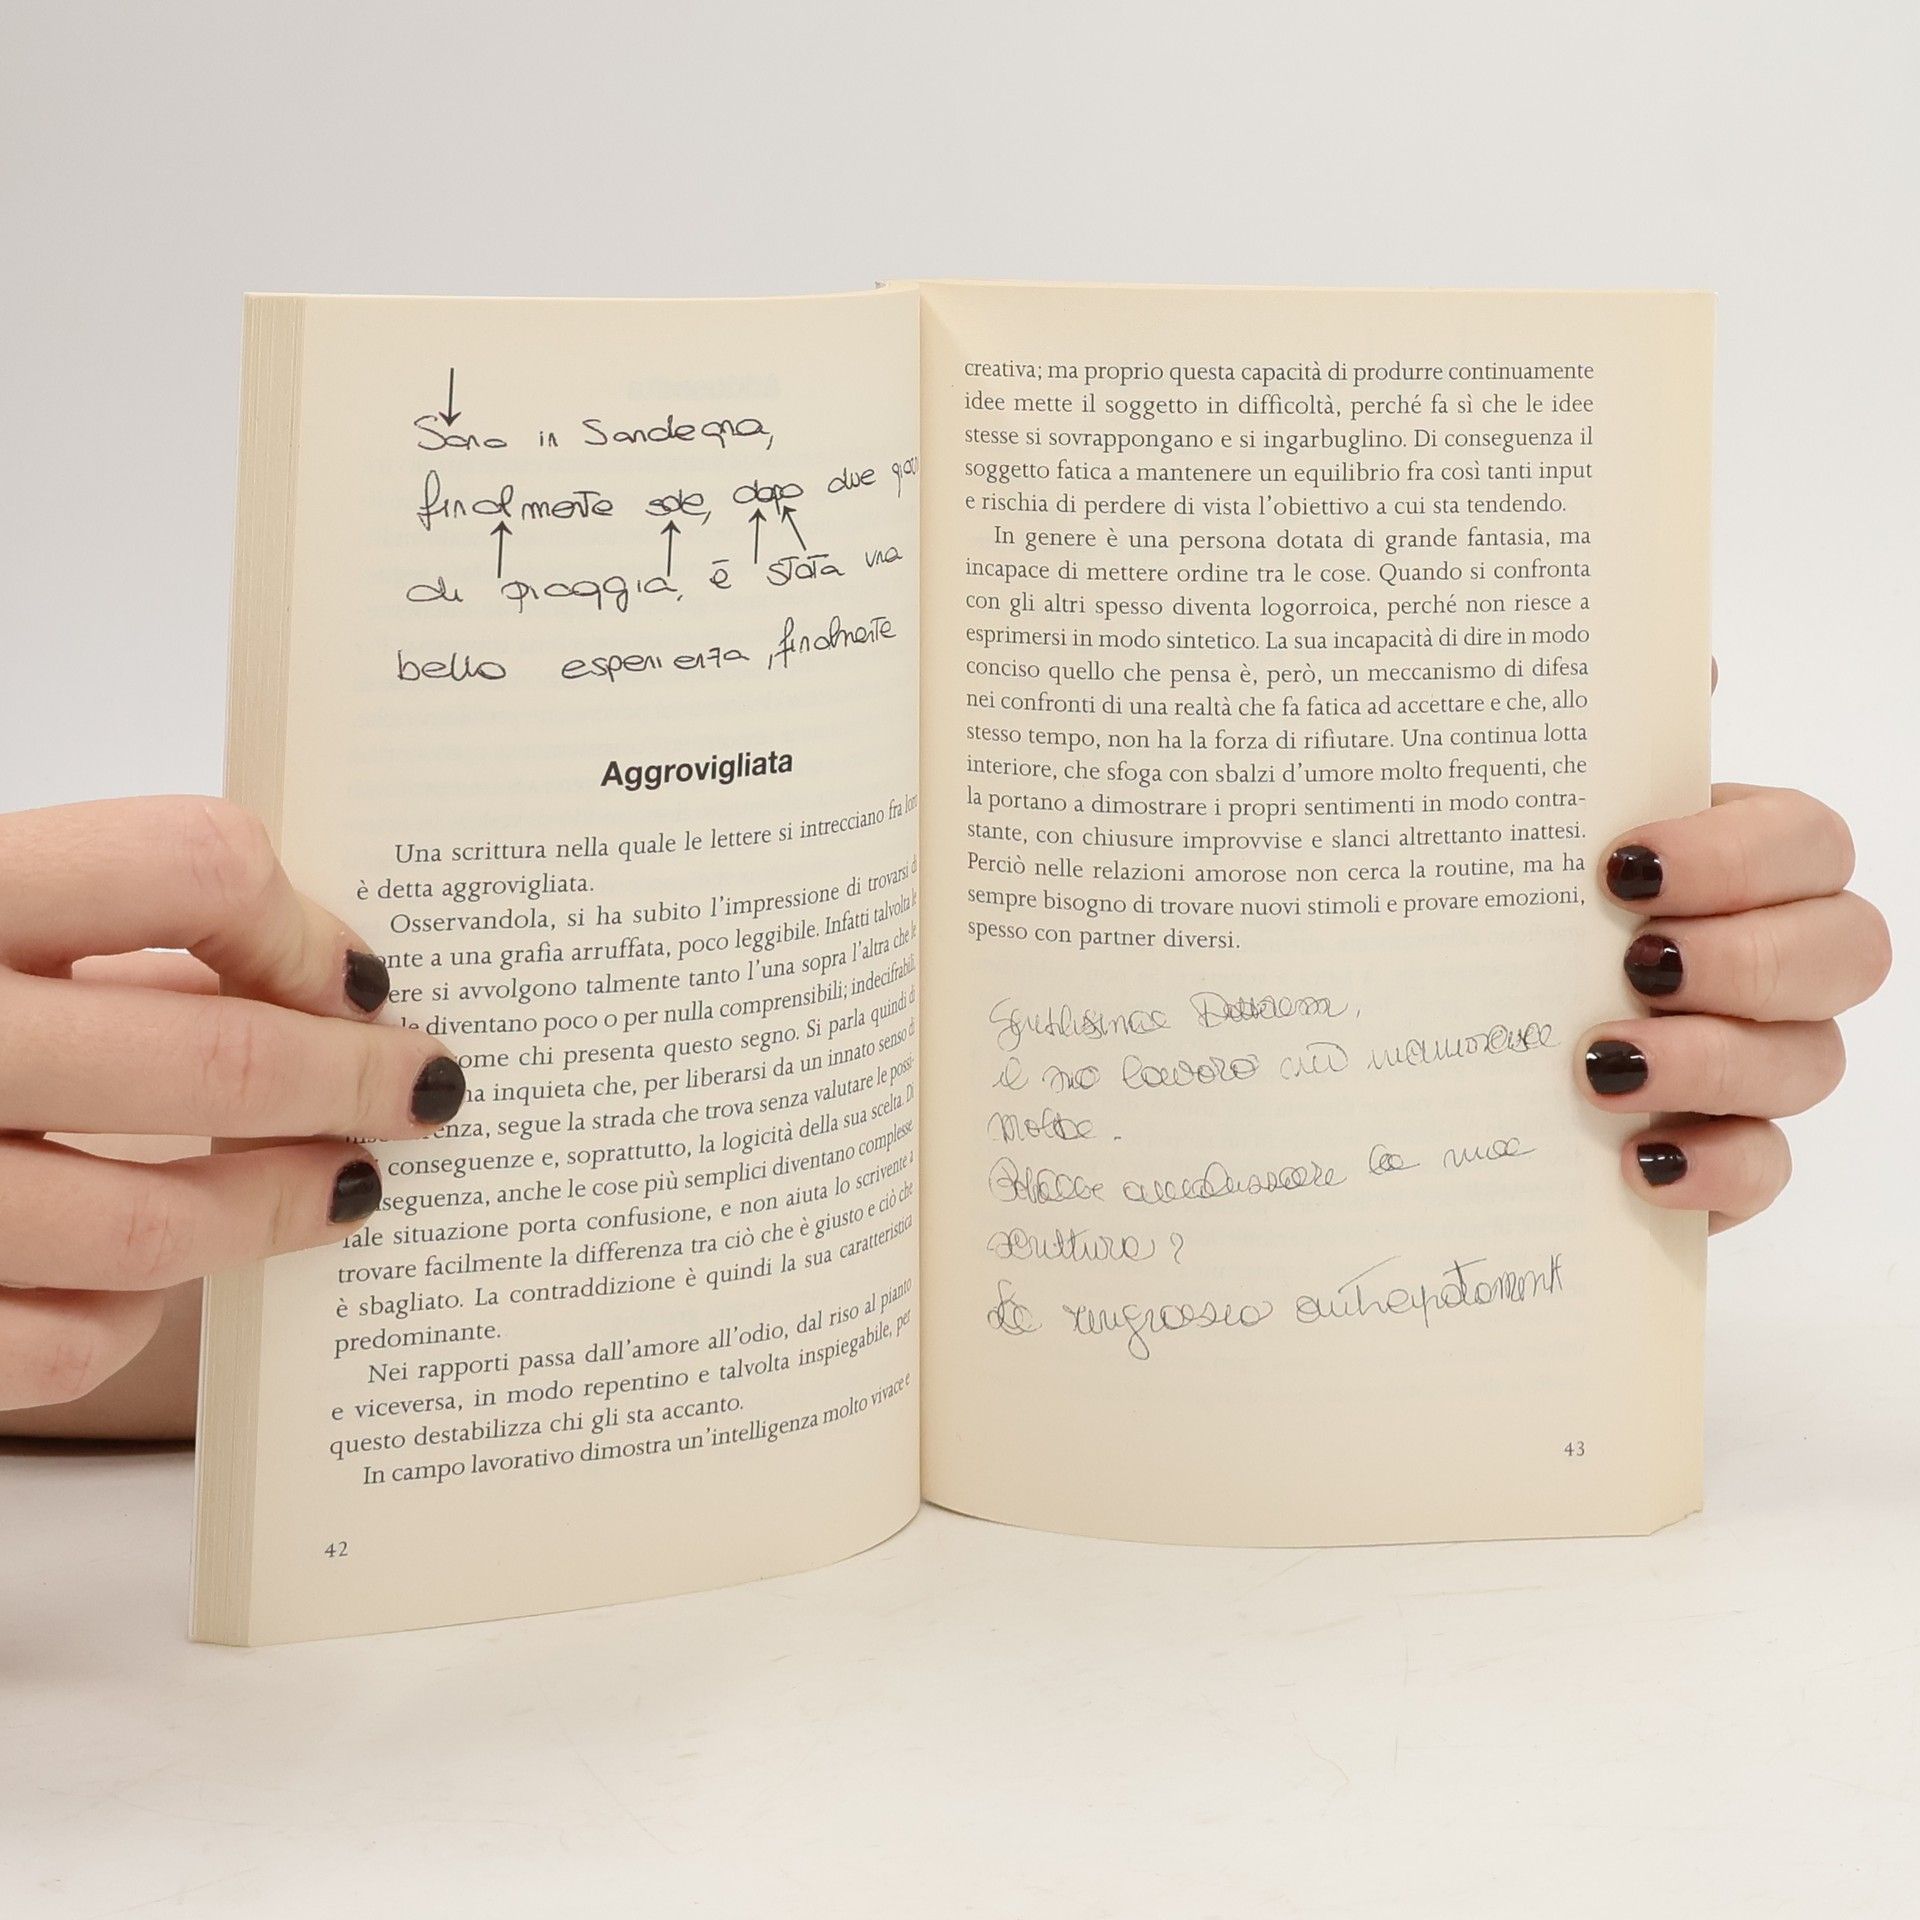 Sono in Sardegna,
finalmente sole, dopo due
di pioggia, è stata una
bella esperienza, finalmente
Aggrovigliata
Una scrittura nella quale le lettere si intrecciano fra
è detta aggrovigliata.
Osservandola, si ha subito l'impressione di trovarsi di
onte a una grafia arruffata, poco leggibile. Infatti talvolta le
ere si avvolgono talmente tanto l'una sopra l'altra che le
le diventano poco o per nulla comprensibili; indecifrabili,
ome chi presenta questo segno. Si parla quindi di
na inquieta che, per liberarsi da un innato senso di
enza, segue la strada che trova senza valutare le possi-
conseguenze e, soprattutto, la logicità della sua scelta. Di
seguenza, anche le cose più semplici diventano complesse
Tale situazione porta confusione, e non aiuta lo scrivente a
trovare facilmente la differenza tra ciò che è giusto e ciò che
è sbagliato. La contraddizione è quindi la sua caratteristica
predominante.
Nei rapporti passa dall'amore all'odio, dal riso al pianto
e viceversa, in modo repentino e talvolta inspiegabile, per
questo destabilizza chi gli sta accanto.
In campo lavorativo dimostra un'intelligenza molto vivace e
42
creativa; ma proprio questa capacità di produrre continuamente
idee mette il soggetto in difficoltà, perché fa sì che le idee
stesse si sovrappongano e si ingarbuglino. Di conseguenza il
soggetto fatica a mantenere un equilibrio fra così tanti input
e rischia di perdere di vista l'obiettivo a cui sta tendendo.
In genere è una persona dotata di grande fantasia, ma
incapace di mettere ordine tra le cose. Quando si confronta
con gli altri spesso diventa logorroica, perché non riesce a
esprimersi in modo sintetico. La sua incapacità di dire in modo
conciso quello che pensa è, però, un meccanismo di difesa
nei confronti di una realtà che fa fatica ad accettare e che, allo
stesso tempo, non ha la forza di rifiutare. Una continua lotta
interiore, che sfoga con sbalzi d'umore molto frequenti, che
la portano a dimostrare i propri sentimenti in modo contra-
stante, con chiusure improvvise e slanci altrettanto inattesi.
Perciò nelle relazioni amorose non cerca la routine, ma ha
sempre bisogno di trovare nuovi stimoli e provare emozioni,
spesso con partner diversi.
Gentilissima Dottoressa,
il suo lavoro mi incuriosisce
molto.
Potrebbe analizzare la mia
scrittura?
La ringrazio anticipatamente
43